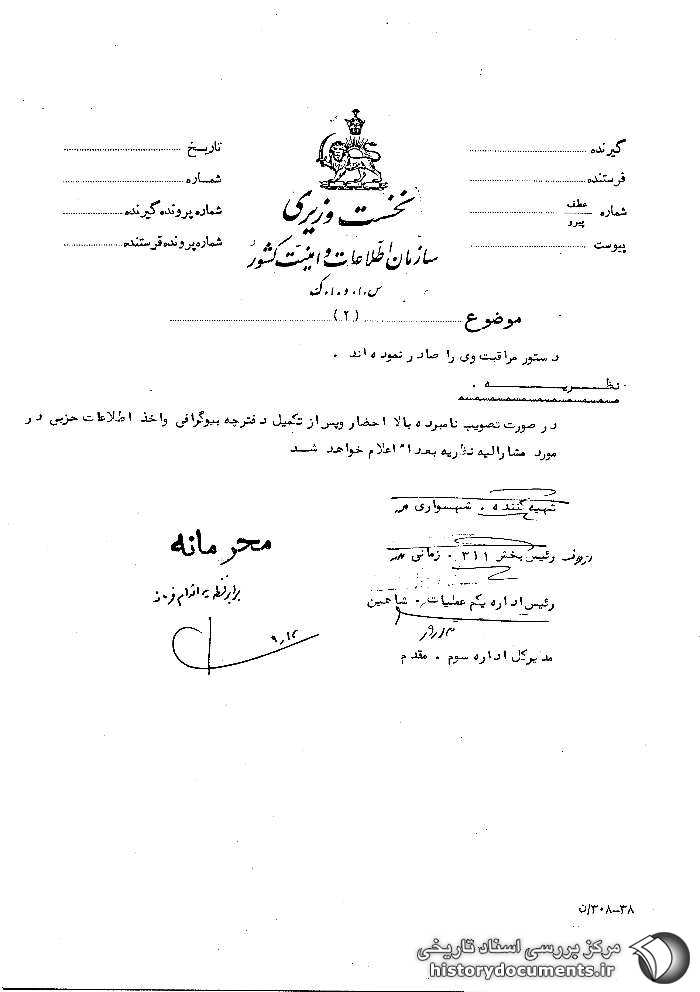 گیرنده
فرستنده
شماره عطف پیرو
پیوست
تاریخ
شماره
شماره پرونده گیرنده
شماره پرونده فرستنده
نخست وزیری
سازمان اطلاعات و امنیت کشور
س.ا.و.ا.ک
موضوع (۲)
دستور مراقبت وی را صادر نموده اند .
نظریه .
در صورت تصویب نامبرده بالا احضار وپس از تکمیل دفترچه بیوگرافی واخذ اطلاعات حزبی در
مورد مشارالیه نظریه بعدا" اعلام خواهد شد
تهیه کننده . شهسواری
رئیس بخش ۳۱۱ . زمانی
رئیس اداره یکم عملیات . شاهین
مدیرکل اداره سوم . مقدم
محرمانه
برابر نظریه اقدام فرمائید
۳۸-۳۰۸/ن
مرکز بررسی اسناد تاریخی
historydocuments.ir